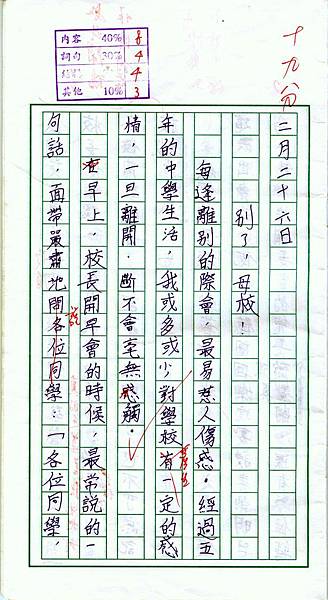 十九分
內容 40% 8
詞句 30% 4
結構 4
其他 10% 3
二月二十六日
別了，母校！
每逢離別的際會，最易惹人傷感。經過五
年的中學生活，我或多或少對學校有一定的感
情，一旦離開，斷不會毫無感觸。
在早上，校長開早會的時候，最常説的一
句話，面帶嚴肅地問各位同學：「各位同學，